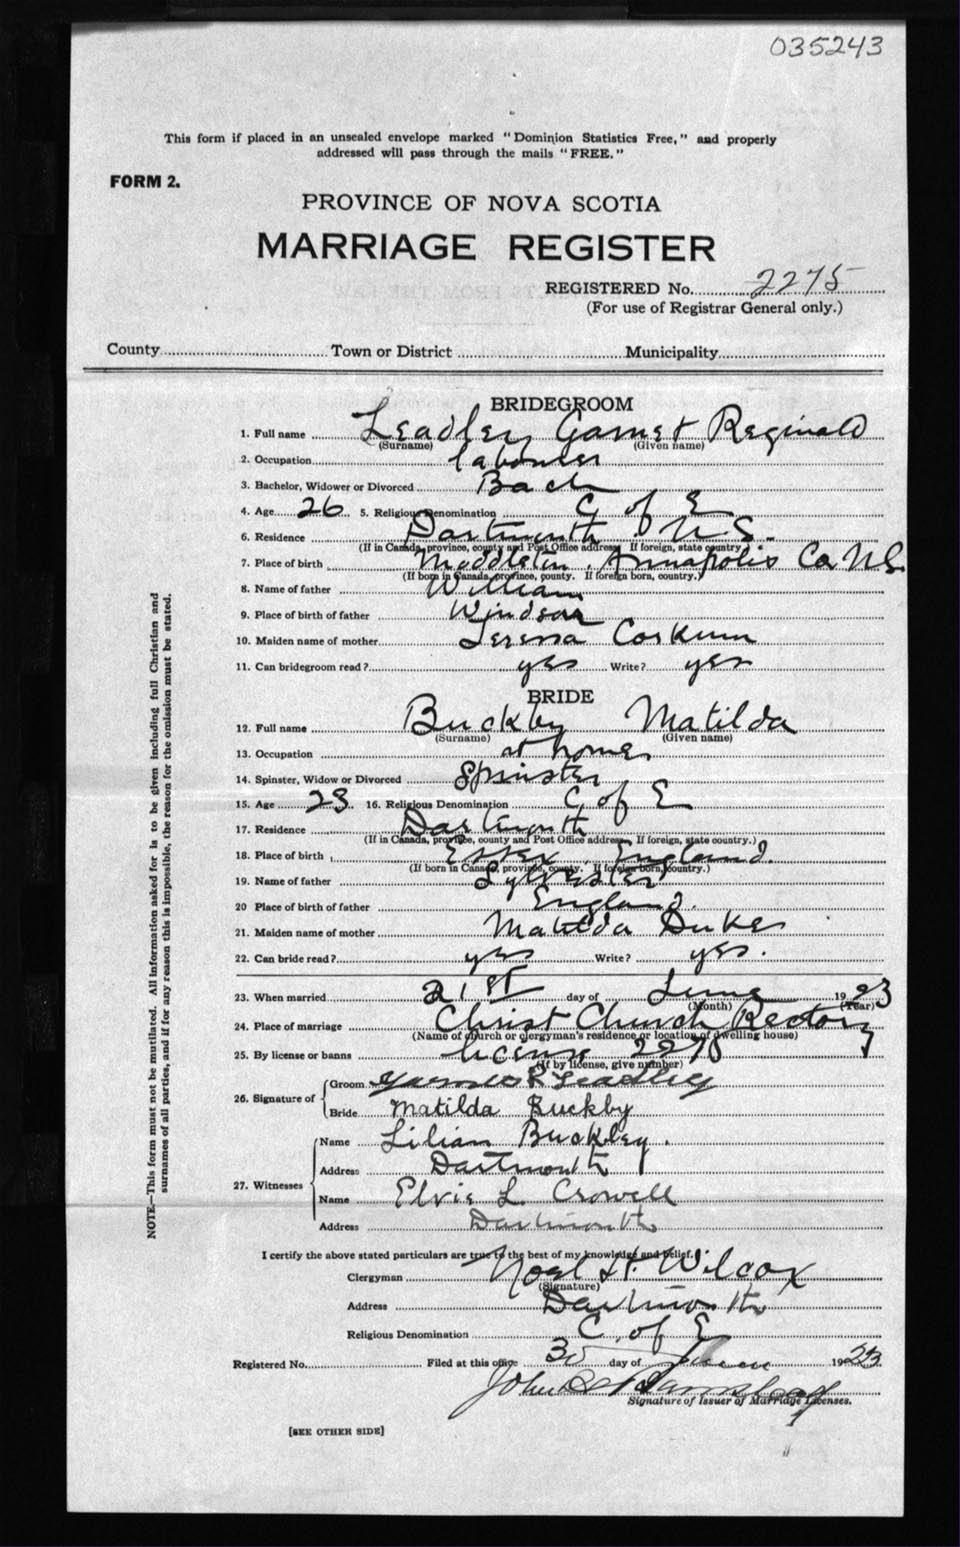 035243
This form if placed in an unsealed envelope marked "Dominion Statistics Free," and properly
addressed will pass through the mails "FREE."
FORM 2.
PROVINCE OF NOVA SCOTIA
MARRIAGE REGISTER
REGISTERED No. 2275
(For use of Registrar General only.)
County Town or District Municipality
BRIDEGROOM
1. Full name Leadley Garnet Reginald
(Surname) (Given name)
2. Occupation labourer
3. Bachelor, Widower or Divorced Bach
4. Age 26 5. Religious Denomination C of E
6. Residence Dartmouth N.S.
(If in Canada, province, county and Post Office address, If foreign, state country.)
7. Place of birth Middleton, Annapolis Co N.S.
(If born in Canada, province, county. If foreign born, country.)
8. Name of father William
9. Place of birth of father Windsor
10. Maiden name of mother Teressa Corkum
11. Can bridegroom read? yes Write? yes
BRIDE
12. Full name Buckby Matilda
(Surname) (Given name)
13. Occupation at home
14. Spinster, Widow or Divorced Spinster
15. Age 23 16. Religious Denomination C of E
17. Residence Dartmouth
(If in Canada, province, county and Post Office address, If foreign, state country.)
18. Place of birth Essex, England.
(If born in Canada, province, county. If foreign born, country.)
19. Name of father Sylvester
20 Place of birth of father England.
21. Maiden name of mother Matilda Dukes
22. Can bride read? yes Write? yes.
23. When married 21st day of June 1923
(Month) (Year)
24. Place of marriage Christ Church Rectory
(Name of church or clergyman's residence or location of dwelling house)
25. By license or banns license 2270
(If by license, give number)
26. Signature of Groom R Leadley
Bride Matilda Buckby
27. Witnesses Name Lilian Buckley.
Address Dartmouth
Name Elvie L. Crowell
Address Dartmouth
I certify the above stated particulars are true to the best of my knowledge and belief.
Clergyman Noel H. Wilcox
(Signature)
Address Dartmouth
Religious Denomination C. of E
Registered No. Filed at this office 30 day of June 1923
John
Signature of Issuer of Marriage Licenses.
[SEE OTHER SIDE]
NOTE—This form must not be mutilated. All information asked for is to be given including full Christian and
surnames of all parties, and if for any reason this is impossible, the reason for the omission must be stated.